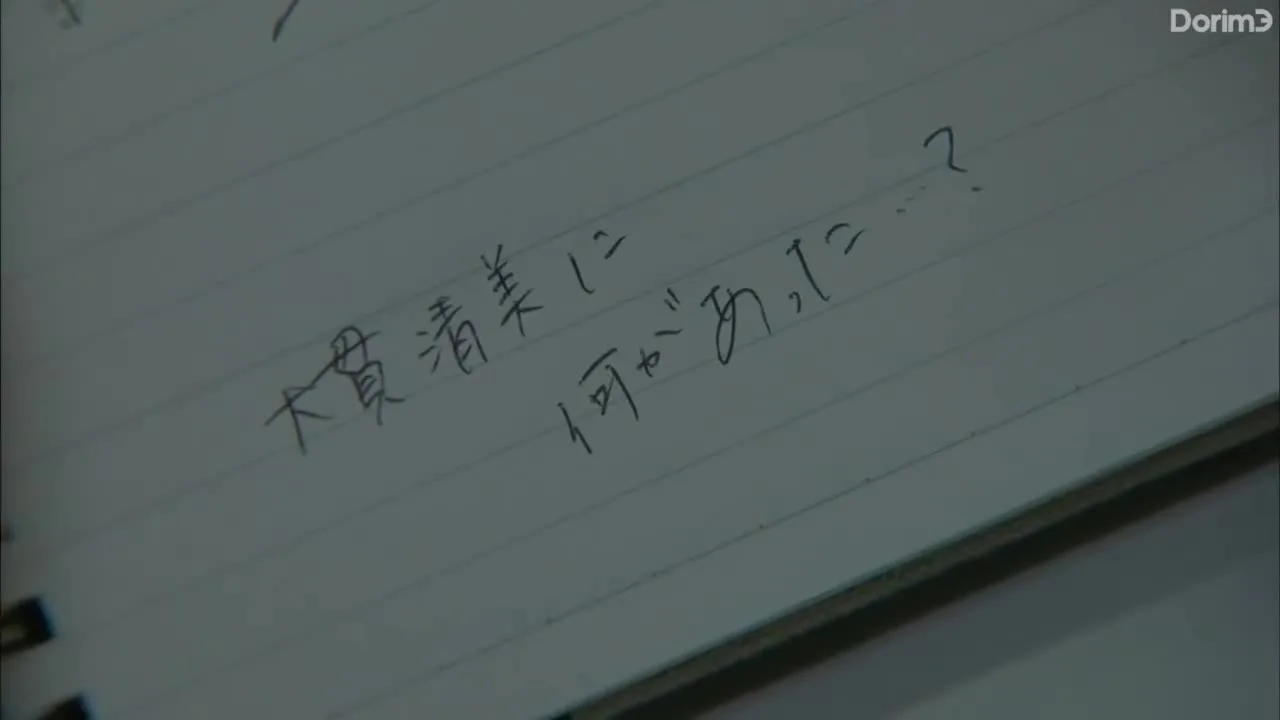 DorimЭ
大貫清美に
何があった…?